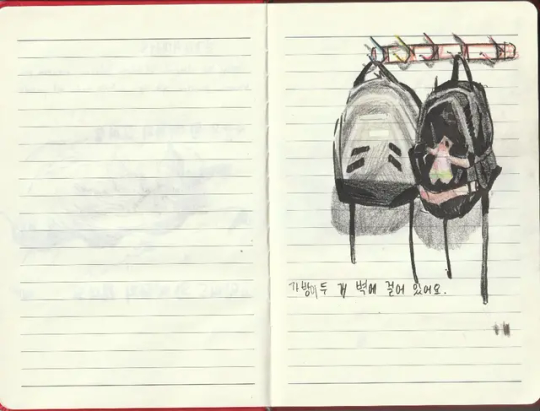 가방이 두 개 벽에 걸어 있어요.